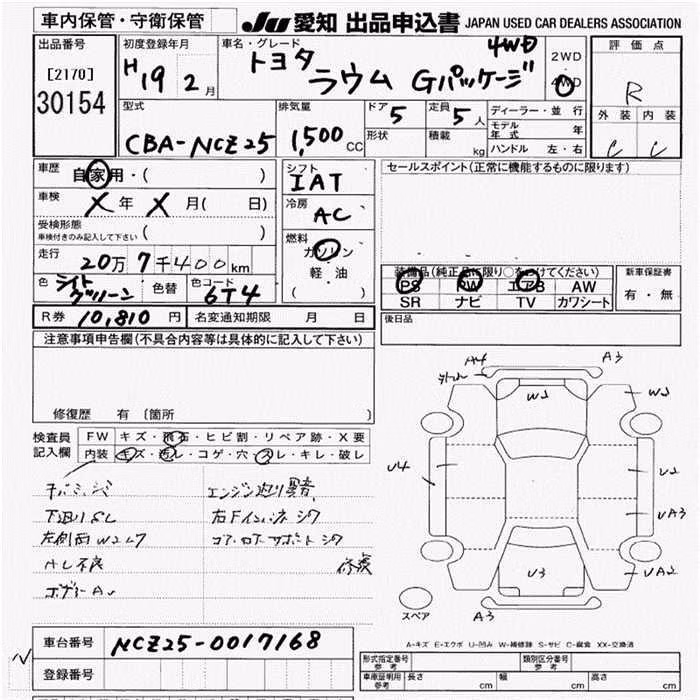 車内保管・守衛保管
JU 愛知 出品申込書 JAPAN USED CAR DEALERS ASSOCIATION
出品番号
[2170]
30154
初度登録年月
H 19 2月
車名・グレード
トヨタ
ラウム Gパッケージ
4WD
2WD
4WD
評価点
R
外装 内装
C C
型式
CBA-NCZ25
排気量
1,500 CC
ドア 5
形状
定員 5人
積載 kg
ディーラー・並行
モデル年式 年
ハンドル 左・右
車歴 自家用・( )
車検 X年 X月( 日)
受検形態
車検付きのみ記入して下さい ( )
走行
20万7千400km
色 ライトグリーン
色替
色コード 6T4
シフト
IAT
冷房
AC
燃料
ガソリン
軽油
( )
セールスポイント(正常に機能するものに限ります)
装備品(純正品に限り○をつけてください)
PS PW エアB AW
SR ナビ TV カワシート
新車保証書
有・無
R券 10,810円
名変通知期限 月 日
後日品
注意事項申告欄(不具合内容等は具体的に記入して下さい)
修復歴 有 〔箇所 〕
検査員
記入欄
FW キズ・飛石・ヒビ割・リペア跡・X要
内装 キズ・汚レ・コゲ・穴・スレ・キレ・破レ
エンジン
下廻りSL
左側面W2
ボデー
A4
A3
W2
W2
U4
U2
UA3
UA2
U3
A3
スペア
A-キズ E-エクボ U-凹み W-補修跡 S-サビ C-腐食 XX-交換済
車台番号 NCZ25-0017168
登録番号
形式指定番号
参考
類別区分番号
参考
車庫証明用
参考
長さ cm
幅 cm
高さ cm